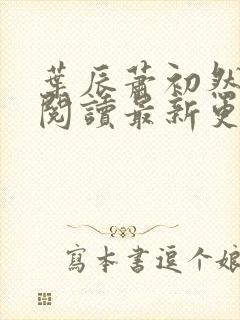 葉辰蕭初然
閱讀最新更
寫本書逗个娘